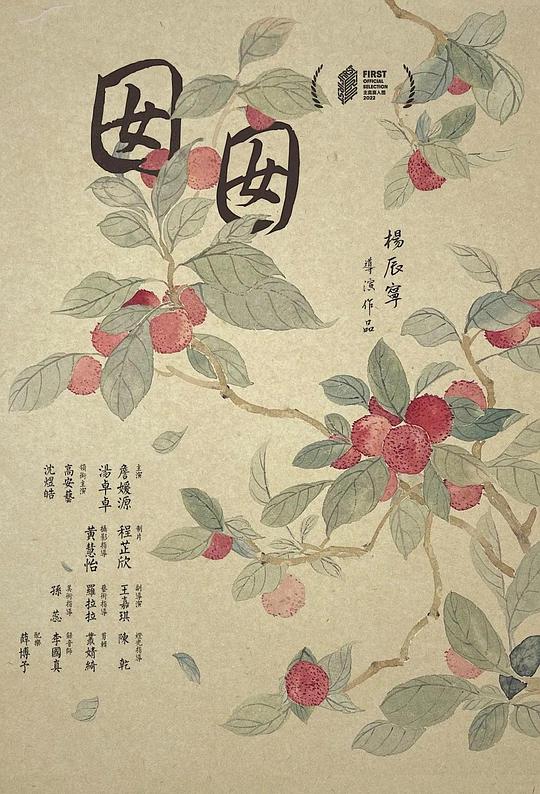 囡囡
FIRST
OFFICIAL
SELECTION
主竞展入围
2022
楊辰寧
導演作品
主演
詹媛源
湯卓卓
領銜主演
高安藝
沈煜皓
製片
程芷欣
攝影指導
黃慧怡
副導演
王嘉琪
藝術指導
羅拉拉
美術指導
孫蕊
燈光指導
陳乾
剪輯
叢婧綺
錄音師
李國真
配樂
薛博予